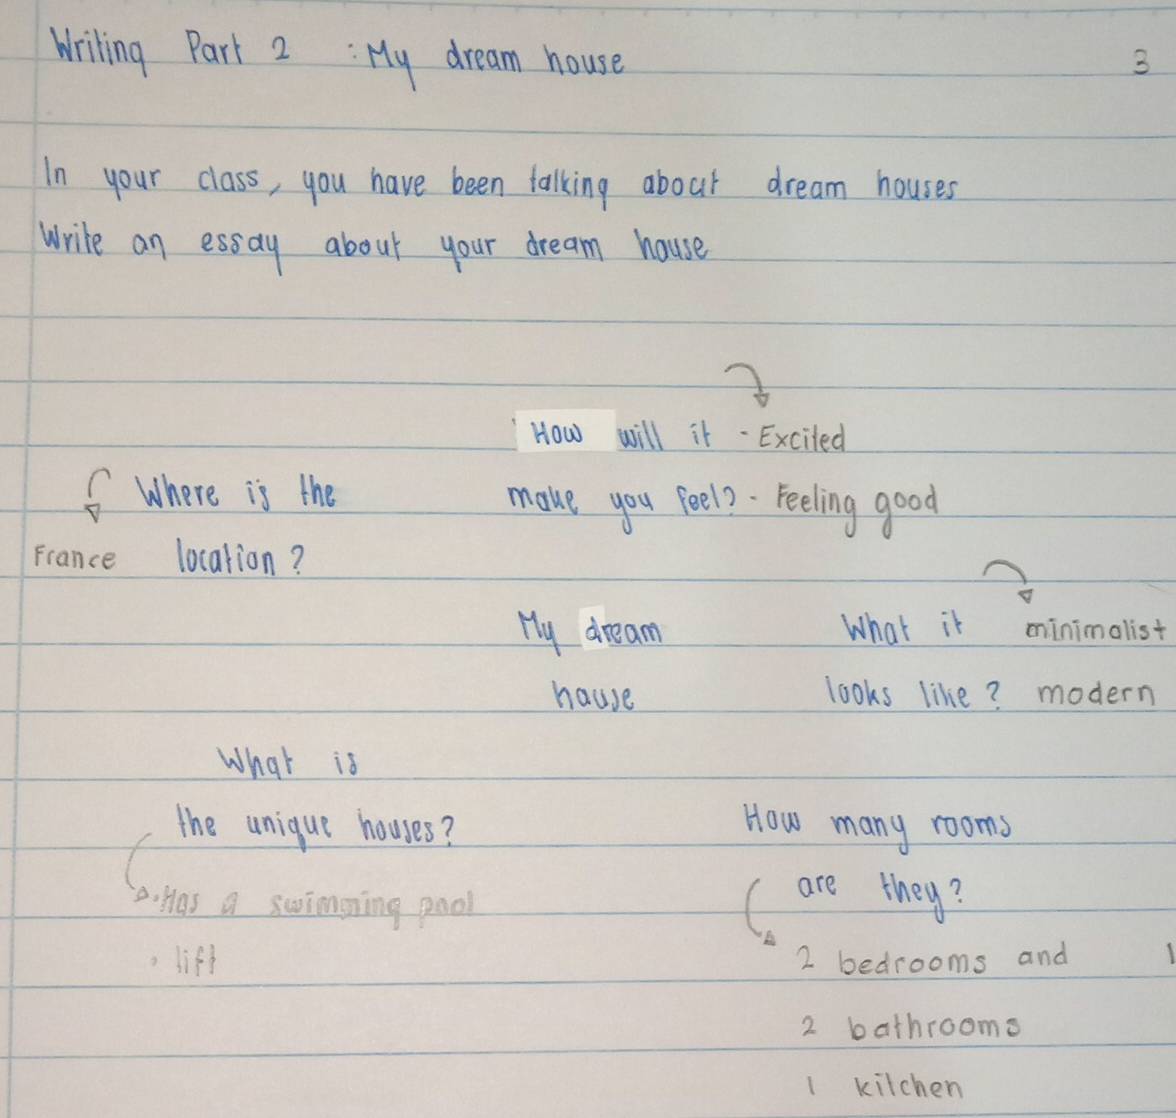 Writing Part 2 : My dream house 3
In your class, you have been talking about dream houses
Write an essay about your dream house
How will it - Excited
make you feel? - Feeling good
Where is the
France location?
My dream
house
What it minimalist
looks like? modern
What is
the unique houses?
• Has a swimming pool
• lift
How many rooms
are they?
2 bedrooms and 1
2 bathrooms
1 kitchen